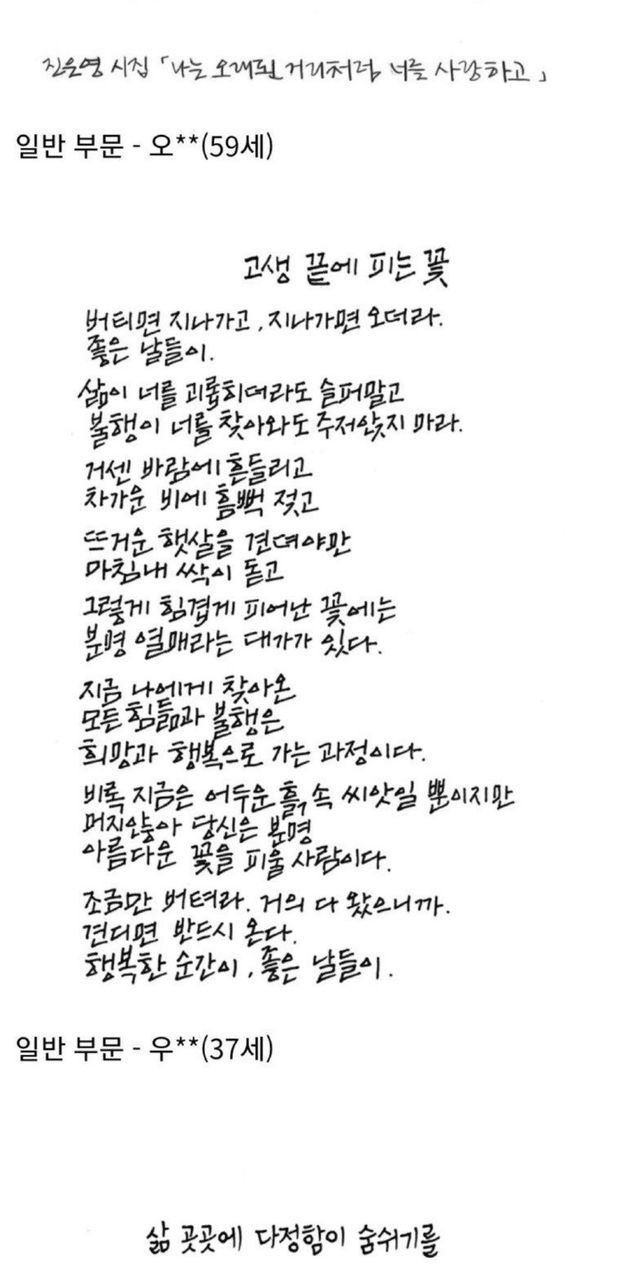 진은영 시집 「나는 오래된 거리처럼 너를 사랑하고」
일반 부문 - 오**(59세)
고생 끝에 피는 꽃
버티면 지나가고, 지나가면 오더라.
좋은 날들이.
삶이 너를 괴롭히더라도 슬퍼말고
불행이 너를 찾아와도 주저앉지 마라.
거센 바람에 흔들리고
차가운 비에 흠뻑 젖고
뜨거운 햇살을 견뎌야만
마침내 싹이 돋고
그렇게 힘겹게 피어난 꽃에는
분명 열매라는 대가가 있다.
지금 나에게 찾아온
모든 힘듦과 불행은
희망과 행복으로 가는 과정이다.
비록 지금은 어두운 흙 속 씨앗일 뿐이지만
머지않아 당신은 분명
아름다운 꽃을 피울 사람이다.
조금만 버텨라. 거의 다 왔으니까.
견디면 반드시 온다.
행복한 순간이, 좋은 날들이.
일반 부문 - 우**(37세)
삶 곳곳에 다정함이 숨쉬기를